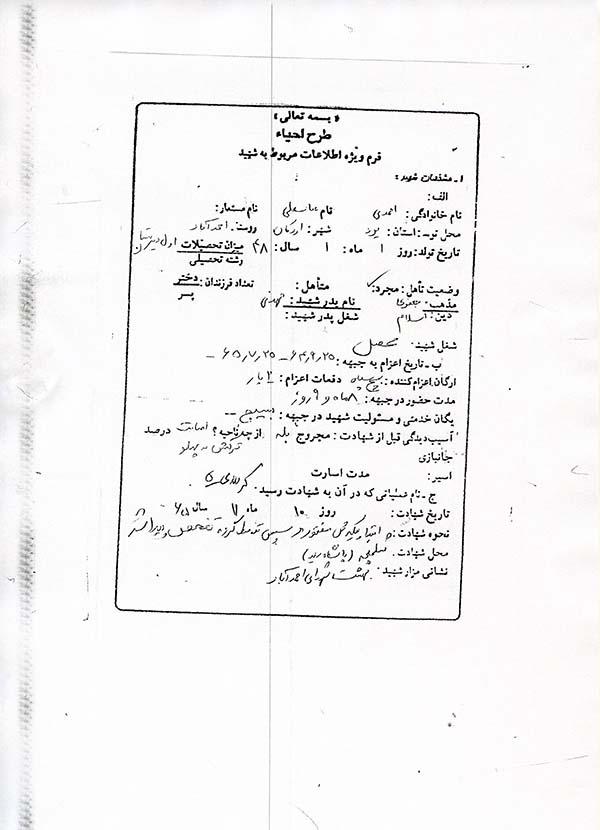 «بسمه تعالی»
طرح احیاء
فرم ویژه اطلاعات مربوط به شهید
۱ـ مشخصات شهید:
الف:
نام خانوادگی: احمدی نام عباسعلی نام مستعار:
محل تولد: استان: یزد شهر: اردکان روستا: احمدآباد
تاریخ تولد: روز ۱ ماه: ۱ سال: ۴۸ میزان تحصیلات اول دبیرستان
رشته تحصیلی
وضعیت تأهل: مجرد: متأهل: تعداد فرزندان: دختر
پسر
مذهب: جعفری نام پدر شهید: مهدی
دین: اسلام شغل پدر شهید:
شغل شهید: محصل
ب ـ تاریخ اعزام به جبهه: ۶۴،۹،۲۵ - ۶۵،۷،۲۵ -
ارگان اعزام کننده: سپاه دفعات اعزام: ۲ بار
مدت حضور در جبهه: ۸ ماه و ۹ روز
یگان خدمتی و مسئولیت شهید در جبهه: بسیج --
آسیب دیدگی قبل از شهادت: مجروح بله از چه ناحیه؟ اصابت درصد
جانبازی ترکش به پهلو
اسیر: مدت اسارت
ج ـ نام عملیاتی که در آن به شهادت رسید: کربلای ۵
تاریخ شهادت: روز ۱۰ ماه ۱۱ سال ۶۵
نحوه شهادت: ابتدا مفقود سپس توسط گروه تفحص پیدا شد
محل شهادت: شلمچه
نشانی مزار شهید: بهشت شهدای احمدآباد